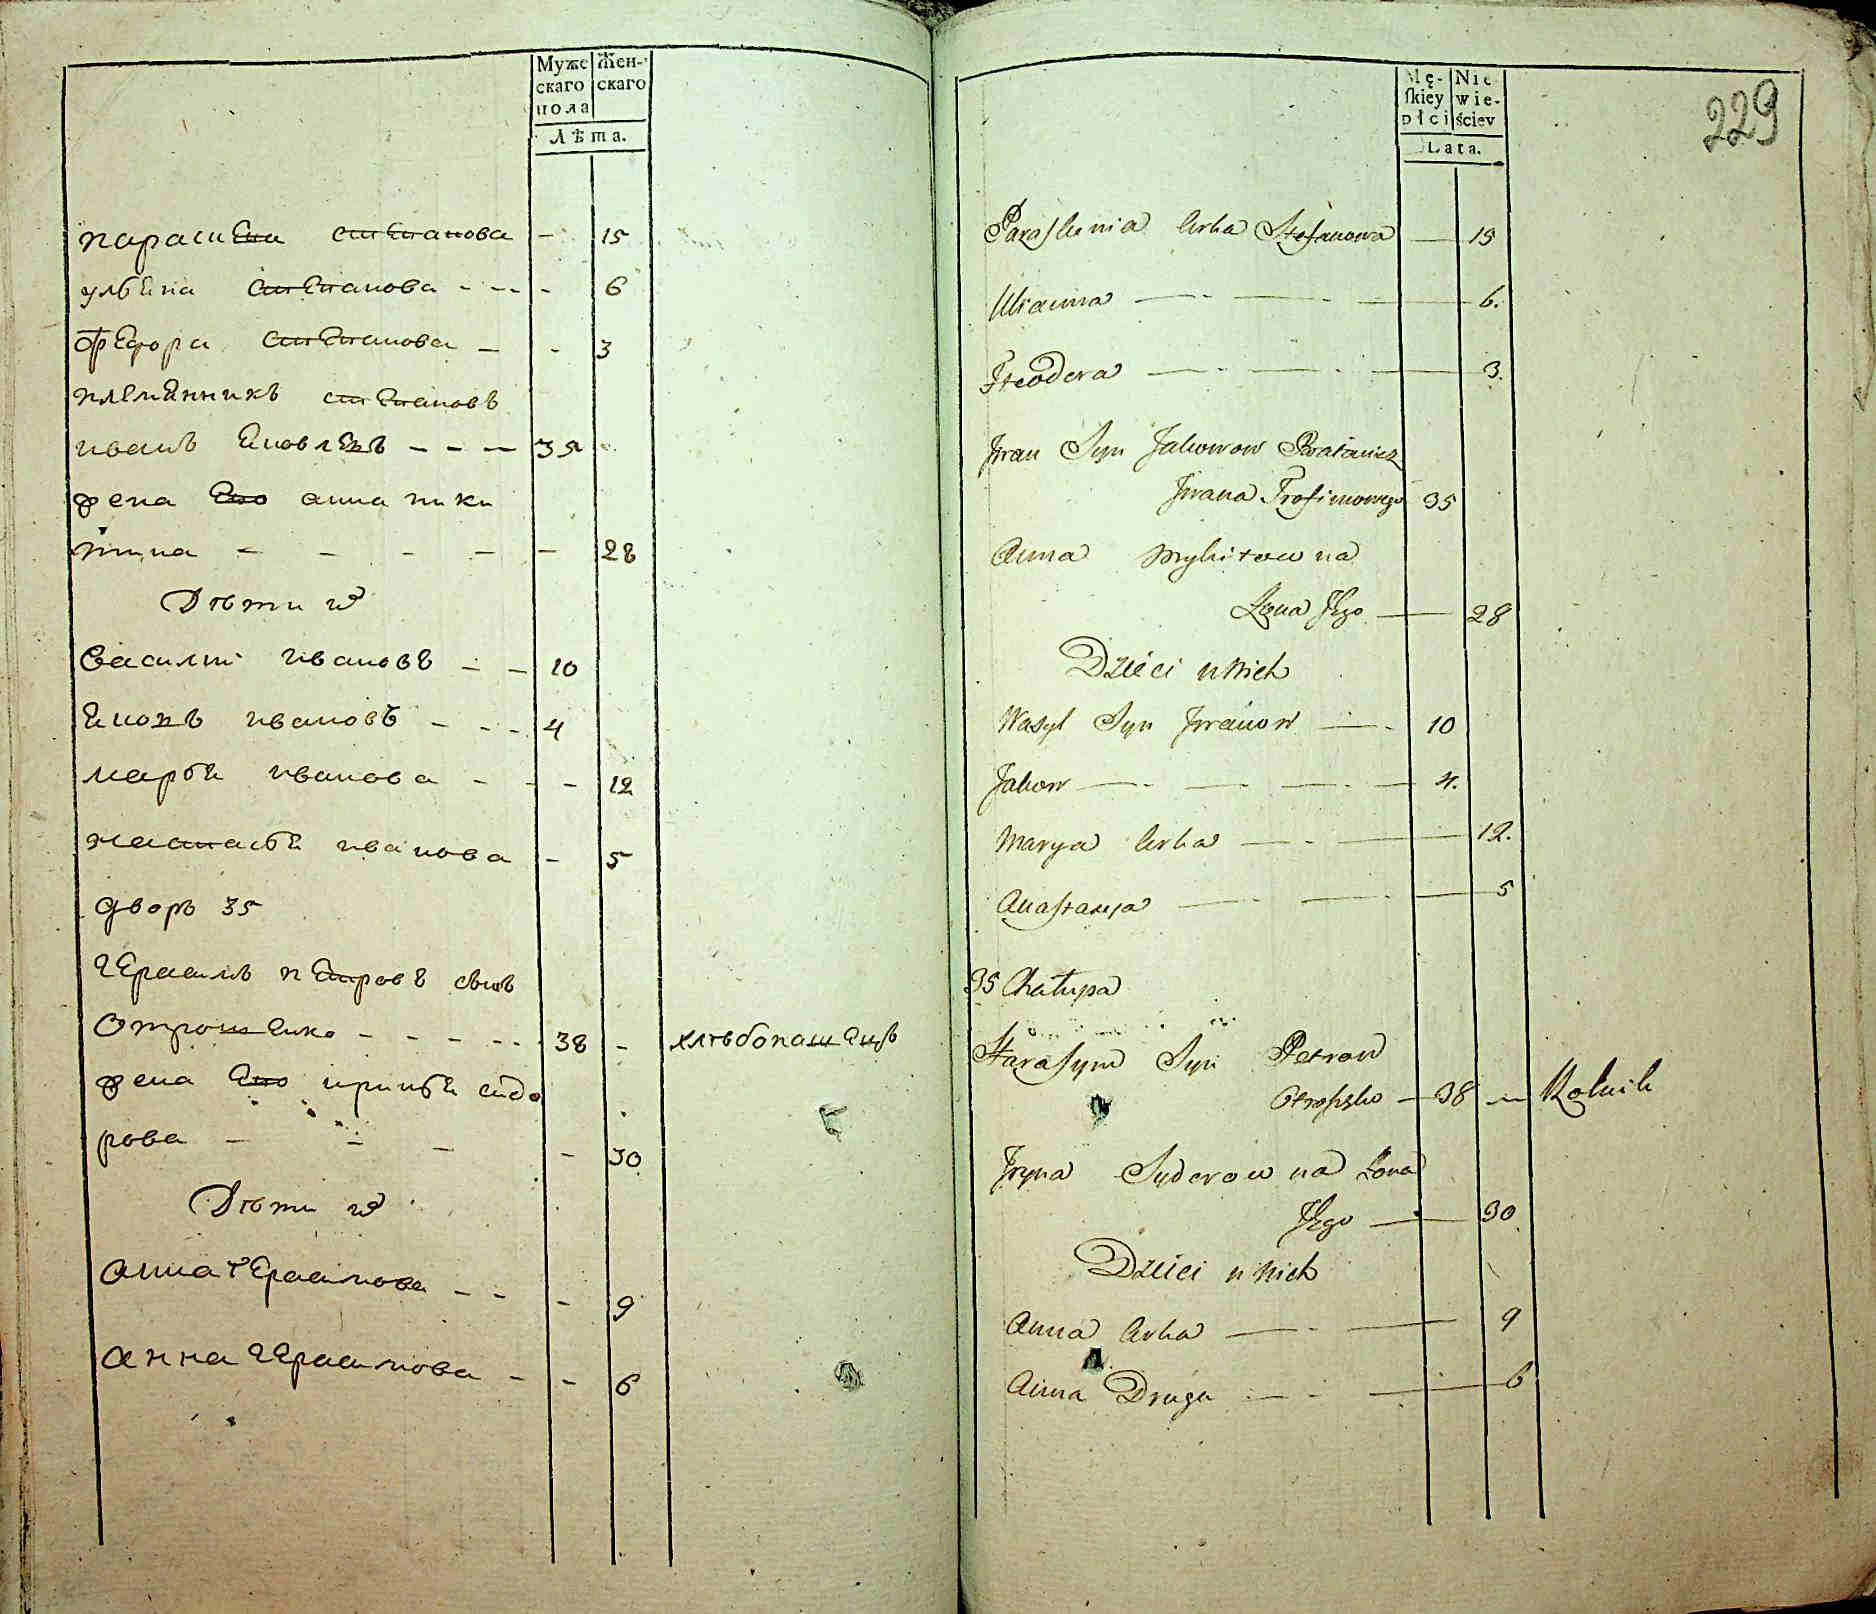 Муже
скаго
пола
Жен-
скаго
Лѣта.
параскева степанова - 15
ульяна степанова - - - - 6
федора степанова - - 3
племянникъ степановъ
иванъ яковлевъ - - - 35
жена его анна ники
тина - - - - - 28
Дѣти их
василий ивановъ - - 10
яковъ ивановъ - - - 4
марья иванова - - - 12
настасья иванова - 5
дворъ 35
герасимъ петровъ сынъ
отрошенко - - - - - 38 - хлѣбопашецъ
жена его ирина сидо
рова - - - - 30
Дѣти их
анна герасимова - - - 9
анна герасимова - - 6
Mę-
skiey
płci
Nie
wie-
ściey
Lata.
229
Paraskewia Corka Stefanowa — 15
Ulianna — 6.
Fteodora — 3.
Jwan Syn Jakowow
Jwana Trofimowego 35
Anna Mykitowna
Zona Jego — 28
Dzieci u Nich
Wasyl Syn Jwanow — 10
Jakow — 4.
Marya Corka — 12.
Anastasya — 5
35 Chałupa
Harasym Syn Petrow
— 38 — Rolnik
Jryna Syderowna Zona
Jego — 30
Dzieci u Nich
Anna Corka — 9
Anna Druga — 6